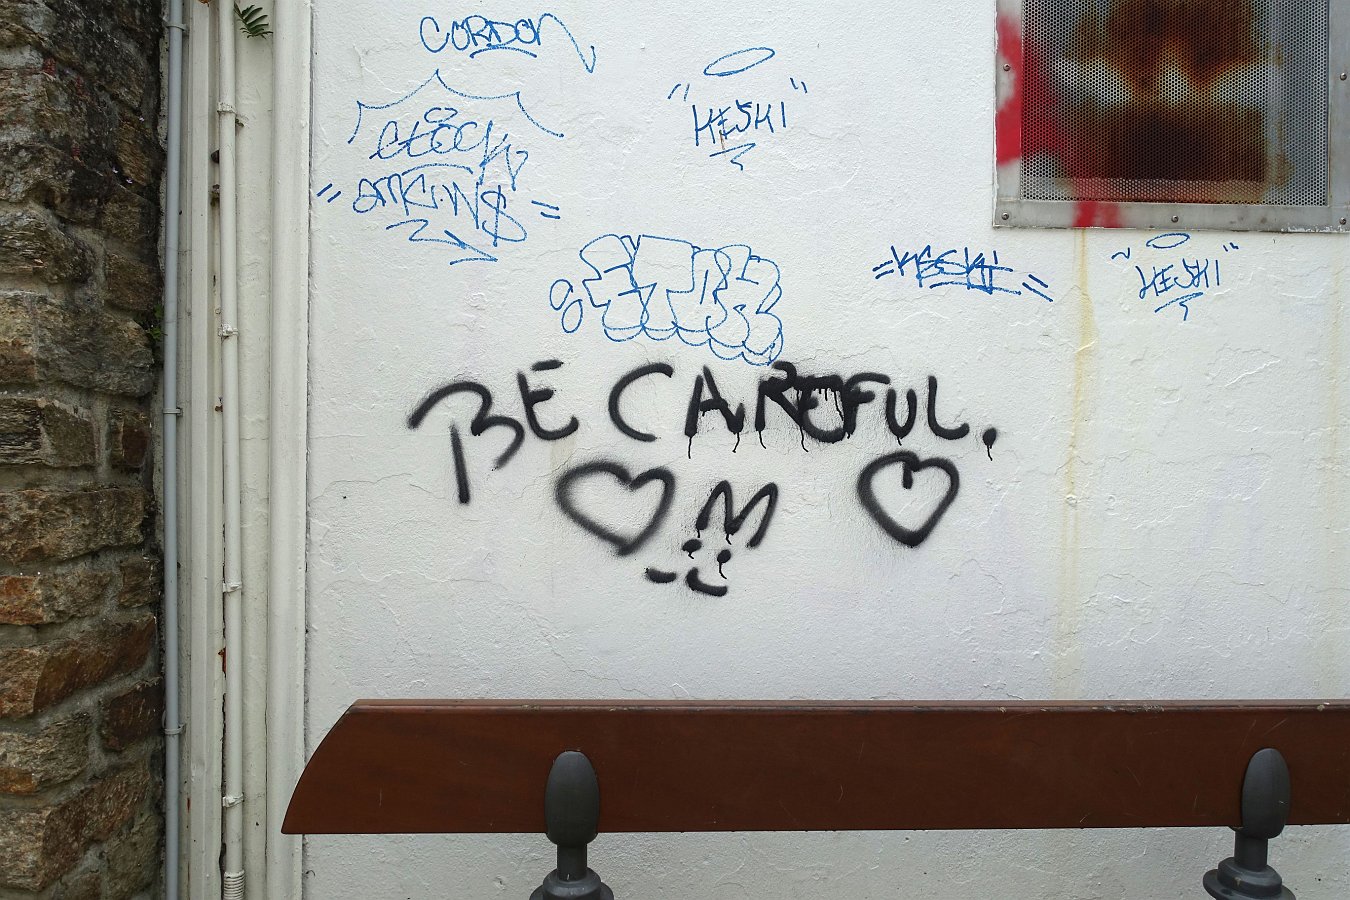 CORDON
"KESKI"
CLOCK
"ATKINS"
KESKI
"KESKI"
BE CAREFUL.